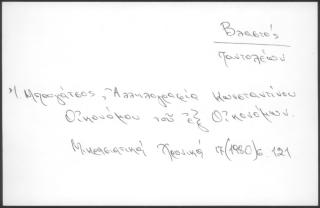 Βλαστός
Παντολέων
Ἰ. Μπουγάτσος, Ἀλληλογραφία Κωνσταντίνου
Οἰκονόμου τοῦ ἐξ Οἰκονόμων.
Μικρασιατικά Χρονικά 17 (1980) σ. 121